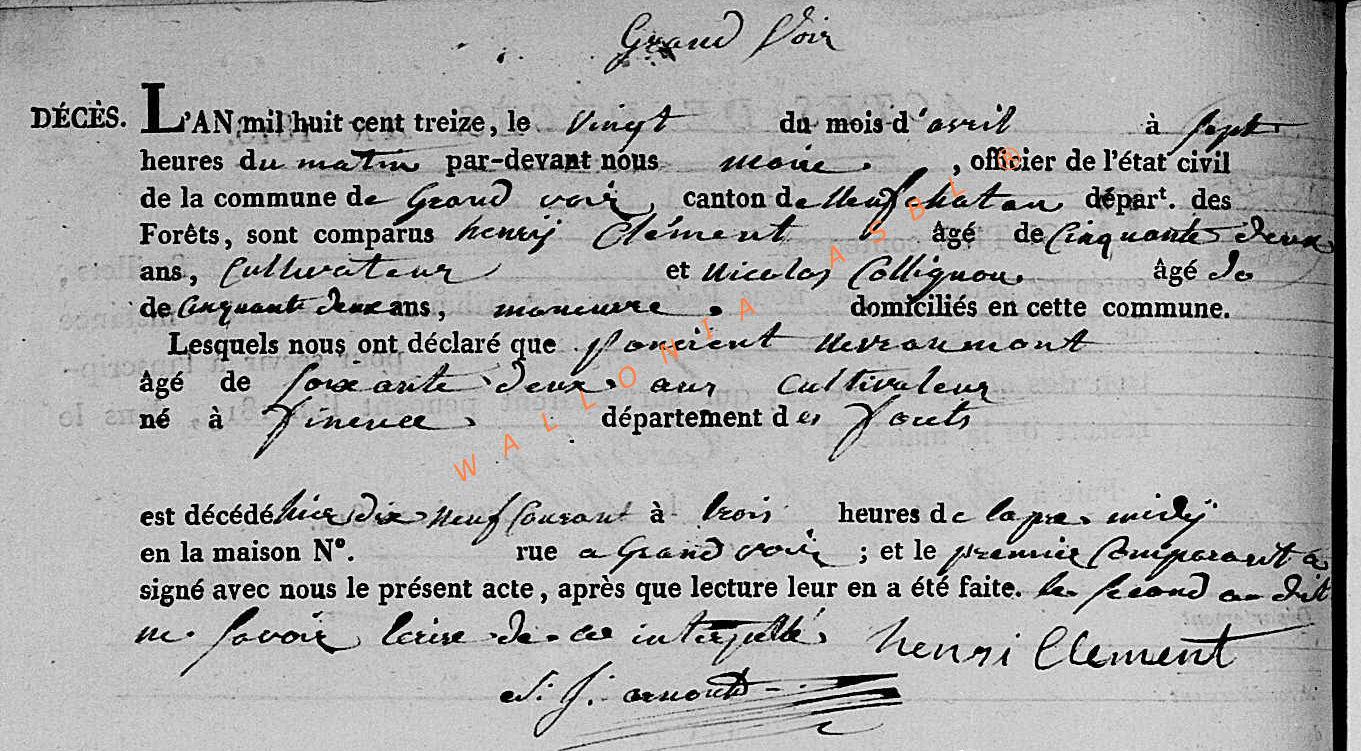 Grand Voir
DÉCÈS. L'AN mil huit cent treize, le vingt du mois d'avril à sept
heures du matin par-devant nous maire, officier de l'état civil
de la commune de Grand voir, canton de Neufchatau départ. des
Forêts, sont comparus henrij Clément âgé de Cinquante deux
ans, Cultivateur et Nicolas Collignon âgé de
de Cinquante deux ans, maneuvre domiciliés en cette commune.
Lesquels nous ont déclaré que poncient nevraumont
âgé de soixante deux ans cultivateur
né à département des forets
est décédé hier dix neuf Courant à trois heures de lapres midij
en la maison N°. rue a Grand voir ; et le premier Comparant a
signé avec nous le présent acte, après que lecture leur en a été faite. le second a dit
ne savoir Ecrire de ce interpellé
henri Clement
arnould
WALLONIA ASBL ©